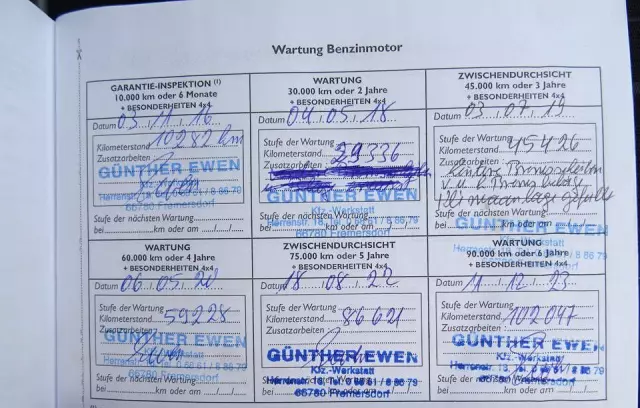 Wartung Benzinmotor
GARANTIE-INSPEKTION (1)
10.000 km oder 6 Monate
+ BESONDERHEITEN 4x4
Datum 03.11.16
Kilometerstand 10282 km
Zusatzarbeiten
GÜNTHER EWEN
Kfz.-Werkstatt
66780 Fremersdorf
Stufe der nächsten Wartung
bei km oder am
WARTUNG
30.000 km oder 2 Jahre
+ BESONDERHEITEN 4x4
Datum 04.05.18
Stufe der Wartung
Kilometerstand 29336
Zusatzarbeiten
GÜNTHER EWEN
Kfz.-Werkstatt
Stufe der nächsten Wartung
bei km oder am
66780 Fremersdorf
ZWISCHENDURCHSICHT
45.000 km oder 3 Jahre
+ BESONDERHEITEN 4x4
Datum 03.07.19
Stufe der Wartung
Kilometerstand 45426
Zusatzarbeiten
Stufe der nächsten Wartung
GÜNTHER EWEN
bei km oder am
Kfz.-Werkstatt
WARTUNG
60.000 km oder 4 Jahre
+ BESONDERHEITEN 4x4
Datum 06.05.20
Stufe der Wartung
Kilometerstand 59228
Zusatzarbeiten
GÜNTHER EWEN
Kfz.-Werkstatt
66780 Fremersdorf
Stufe der nächsten Wartung
bei km oder am
ZWISCHENDURCHSICHT
75.000 km oder 5 Jahre
+ BESONDERHEITEN 4x4
Datum 18.08.22
Stufe der Wartung
Kilometerstand 86621
Zusatzarbeiten
GÜNTHER EWEN
Kfz.-Werkstatt
Stufe der nächsten Wartung
66780 Fremersdorf
bei km oder am
WARTUNG
90.000 km oder 6 Jahre
+ BESONDERHEITEN 4x4
Datum 11.12.23
Stufe der Wartung
Kilometerstand 102047
Zusatzarbeiten
GÜNTHER EWEN
Kfz.-Werkstatt
Stufe der nächsten Wartung
66780 Fremersdorf
bei km oder am